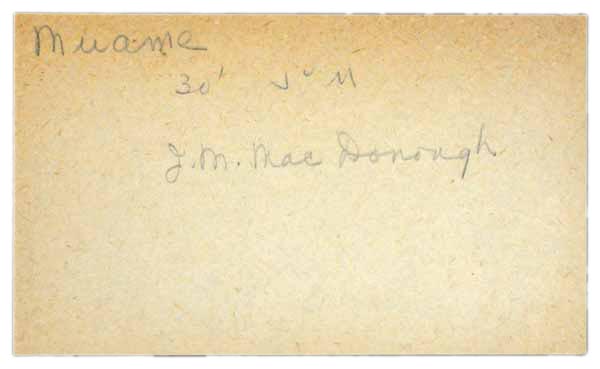 Muame
30'
J. M. Mac Donough